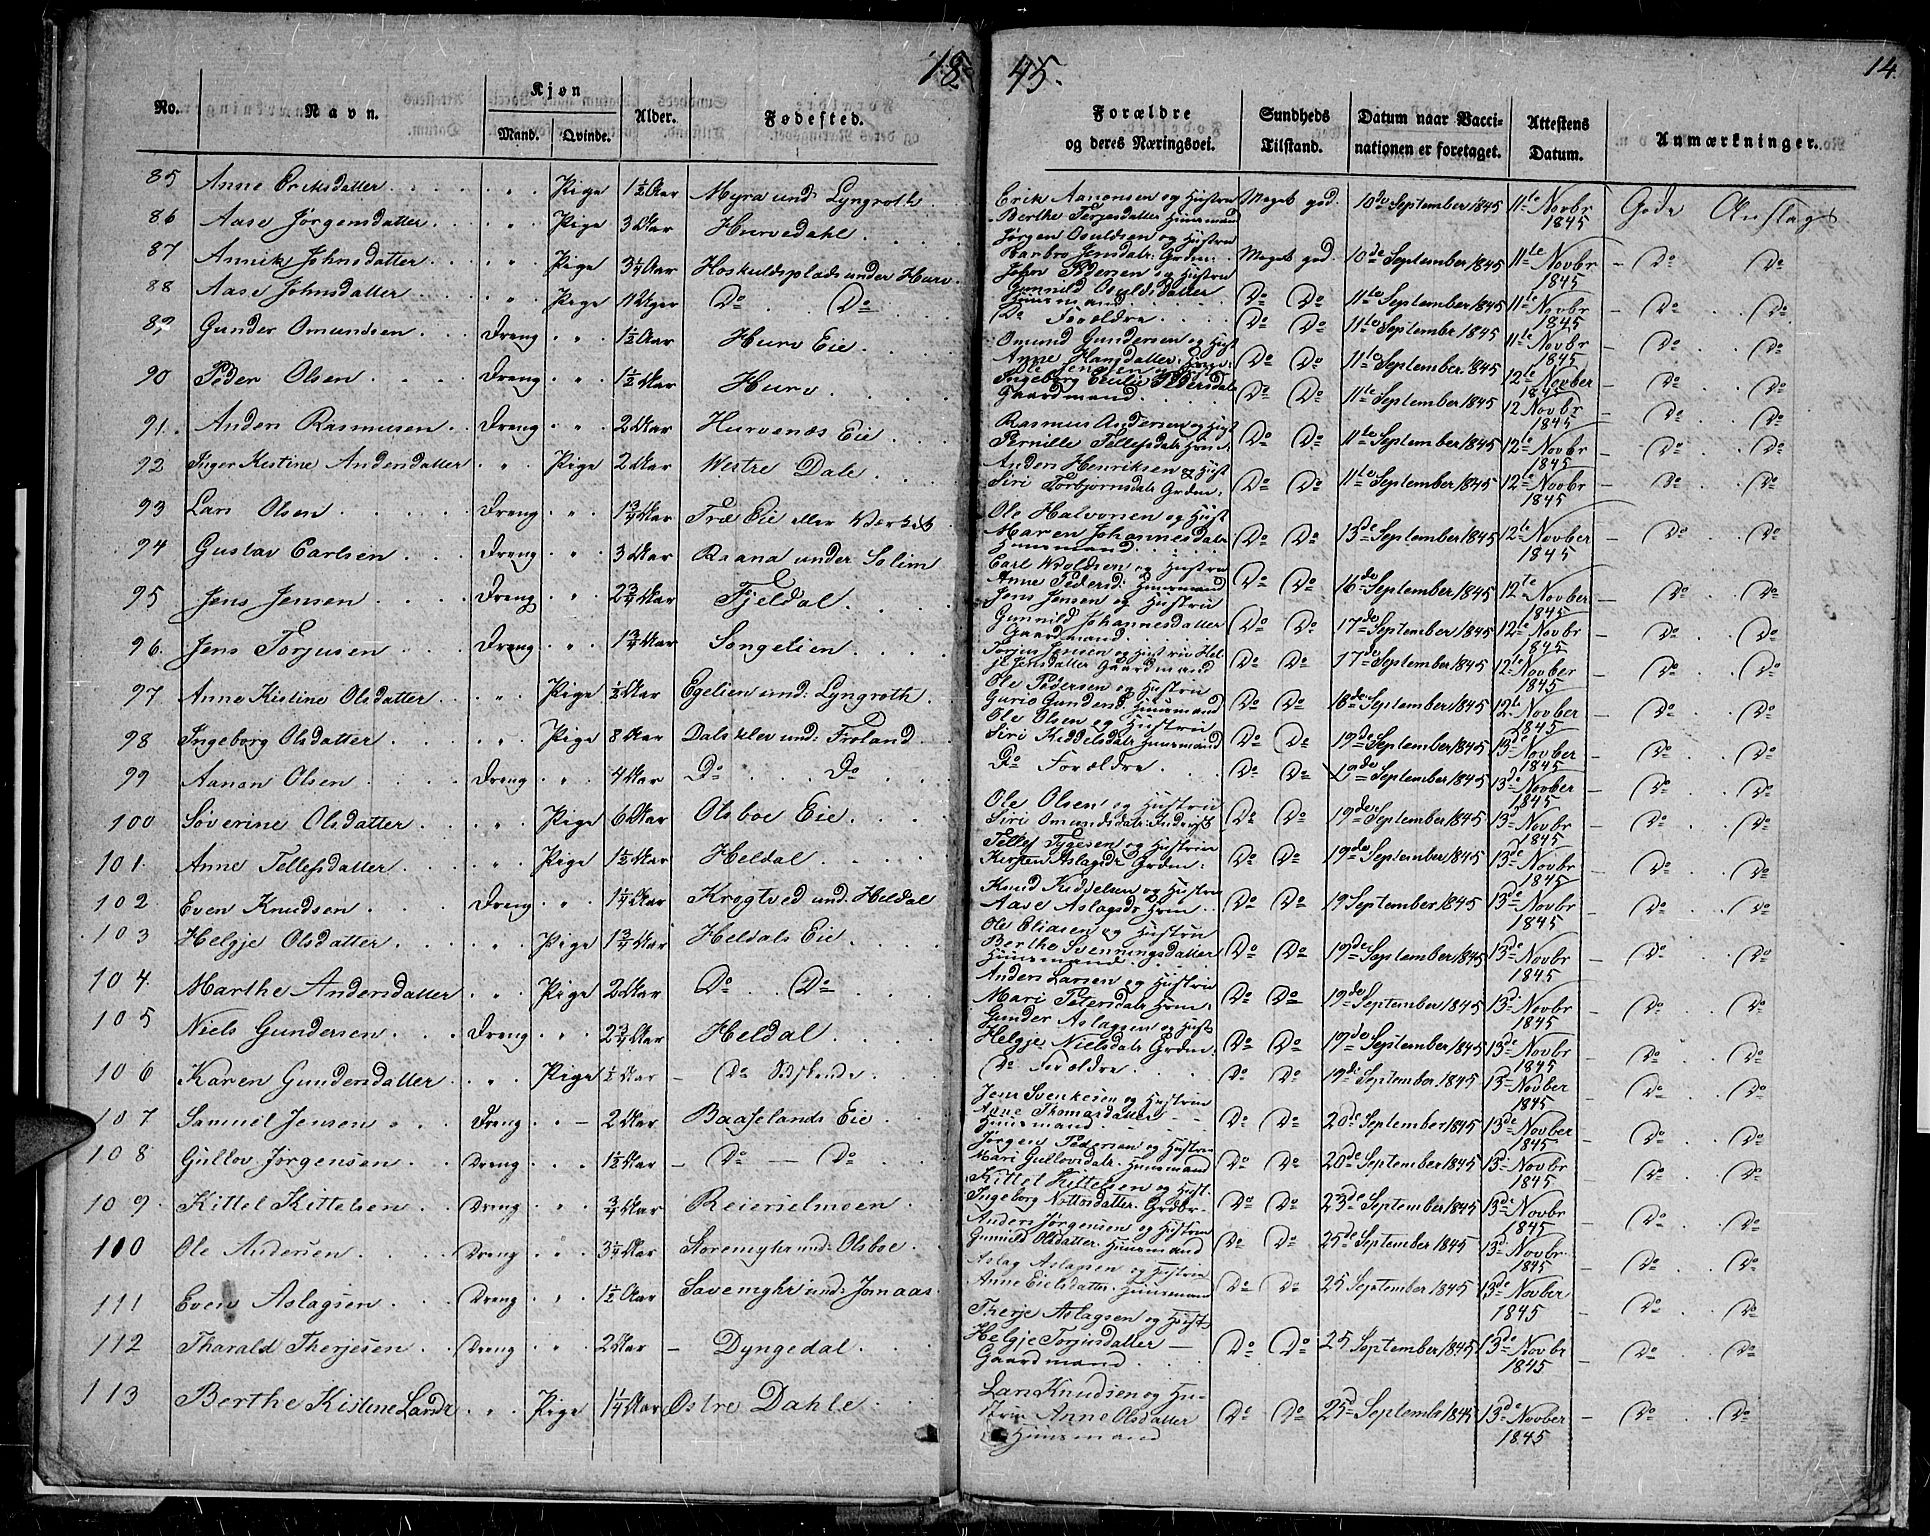 1845.
14.
No. Navn. Kjøn Alder. Fødested. Forældre Sundheds Datum naar Vacci- Attestens Anmærkninger.
Mand. Qvinde. og deres Næringsvei. Tilstand. nationen er foretaget. Datum.
85 Anne Eriksdatter " Pige 1½ Aar Myra und Lyngroth Erik Aanonsen og Hustru Meget god. 10de September 1845 11te Novbr Gode Anslag
Berthe Terjesdatter Huusmand 1845
86 Aase Jørgensdatter " Pige 3 Aar Hurvedahl Jørgen Osuldsen og Hustru
Barbro Jensdatr: Grdm: Meget god. 10de September 1845 11te Novbr 1845 — Do Do
87 Annik Johnsdatter " Pige 3¼ Aar Hoskuldsplads under Hurv John Pedersen og Hustru
Gunnild Osuldsdatter Huusmand Do Do 11te September 1845 11te Novbr 1845 — Do Do
88 Aase Johnsdatter " Pige 11 Uger Do Do Do Forældre Do Do 11te September 1845 11te Novbr 1845 — Do Do
89 Gunder Omundsen Dreng " 1½ Aar Hurv Eie Omund Gundersen og Hust
Anne Hansdatter Do Do 11te September 1845 12te Novber 1845 — Do Do
90 Peder Olsen Dreng " 1½ Aar Hurv Ole Jensen og Hustru
Ingeborg Cecilie Pedersdatr
Gaardmand Do Do 11te September 1845 12 Novbr 1845 — Do Do
91. Anders Rasmusen Dreng " 2 Aar Hurvenæs Eie Rasmus Andersen og Hust
Pernille Tellefsdatr Do Do 11te September 1845 12te Novbr 1845 — Do Do
92 Inger Kistine Andersdatter " Pige 2 Aar Westre Dale Anders Henriksen og Hust
Siri Torbjørnsdatr Grdm: Do Do 11te September 1845 12te Novbr 1845 — Do Do
93 Lars Olsen Dreng " 1¾ Aar Træ Eie eller Værket Ole Halvorsen og Hust
Maren Johannesdatr
Huusmand Do Do 13de September 1845 12te Novber 1845 — Do Do
94 Gustav Carlsen Dreng " 3 Aar Raana under Solim Carl Woldsen og Hustru
Anne Pedersd: Huusmand Do Do 16de September 1845 12te Novber 1845 — Do Do
95 Jens Jensen Dreng " 2¾ Aar Fjeldal. Jens Jensen og Hustru
Gunnild Johannesdatter
Gaardmand Do Do 17de September 1845 12te Novbr 1845 — Do Do
96. Jens Torjusen Dreng " 1¾ Aar Songelien Torjus Jensen og Hustru Hel-
je Jensdatter Gaardmand Do Do 17de September 1845 12te Novber 1845 — Do Do
97 Anne Kistine Olsdatter " Pige ½ Aar Egelien und: Lyngroth. Ole Pedersen og Hustru
Guro Gundersd. Huusmand Do Do 18de September 1845 12te Novber 1845 — Do Do
98 Ingeborg Olsdatter " Pige 8 Aar Dalsklev und: Froland Ole Olsen og Hustru
Siri Kiddelsdatr Huusmand Do Do 19de September 1845 13de Novber 1845 — Do Do
99 Aanon Olsen Dreng " 4 Aar Do Do Do Forældre Do Do September 1845 13de Novber 1845 — Do Do
100 Søverine Olsdatter " Pige 6 Aar Olsboe Eie Ole Olsen og Hustru
Siri Omundsdatr Do Do 19de September 1845 13de Novbr 1845 — Do Do
101. Anne Tellefsdatter " Pige 1½ Aar Heldal Tellef Tygesen og Hustru
Kirsten Aslagsdr Grdm: Do Do 19de September 1845 13de Novbr 1845 — Do Do
102. Even Knudsen Dreng " 1¼ Aar Krogtved und: Heldal Knud Kiddelsen og Hustru
Aase Aslagsdr Hrm Do Do 19 September 1845 13de Novbr 1845 — Do Do
103 Helgje Olsdatter " Pige 1¾ Aar Heldals Eie Ole Eliasen og Hustru
Berthe Svenningsdatter
Huusmand Do Do 19de September 1845 13de Novbr 1845 — Do Do
104. Marthe Andersdatter " Pige 2 Aar Do Do Anders Larsen og Hustru
Mari Petersdatr Hrm: Do Do 19de September 1845 13de Novbr 1845 — Do Do
105 Niels Gundersen Dreng " 2¾ Aar Heldal Gunder Aslagsen og Hust
Helgje Nielsdatr Grdm: Do Do 19de September 1845 13de Novbr 1845 — Do Do
106 Karen Gundersdatter " Pige ½ Aar — Do Do Forældre Do Do 19de September 1845 13de Novber 1845 — Do Do
107 Samuel Jensen Dreng " 2 Aar Baaselands Eie Jens Svenkesen og Hustru
Anne Thomasdatter
Huusmand Do Do 20de September 1845 13de Novber 1845 — Do Do
108 Gullov Jørgensen Dreng " 1½ Aar — Do — Do Jørgen Pedersen og Hustru
Mari Gullovsdatr Huusmand Do Do 20de September 1845 13de Novbr 1845 — Do Do
109. Kittel Kittelsen Dreng " ¾ Aar Reierselmoen Kittel Kittelsen og Hust.
Ingeborg Do Do 23de September 1845 13de Novbr 1845 — Do Do
110 Ole Andersen Dreng " 3¼ Aar Storemyhr und: Olsboe. Anders Jørgensen og Hustru
Gunnild Olsdatter Huusmand Do Do 25de September 1845 13de Novbr 1845 — Do Do
111 Even Aslagsen Dreng " 1½ Aar Savemyhr und: Jomaas Aslag Aslagsen og Hustru
Anne Eielsdatter Huusmand Do Do 25 September 1845 13de Novber 1845 — Do Do
112 Tharald Therjesen Dreng " 2 Aar — Dyngedal Therje Aslagsen og Hust
Helgje Torjusdatter —
Gaardmand Do Do 25 September 1845 13de Novbr 1845 — Do Do
113 Berthe Kistine Larsdr " Pige 1¼ Aar Østre Dahle Lars Knudsen og Hu-
stru Anne Olsdatter
Huusmand Do Do 25d September 1845 13de Novber 1845 — Do Do